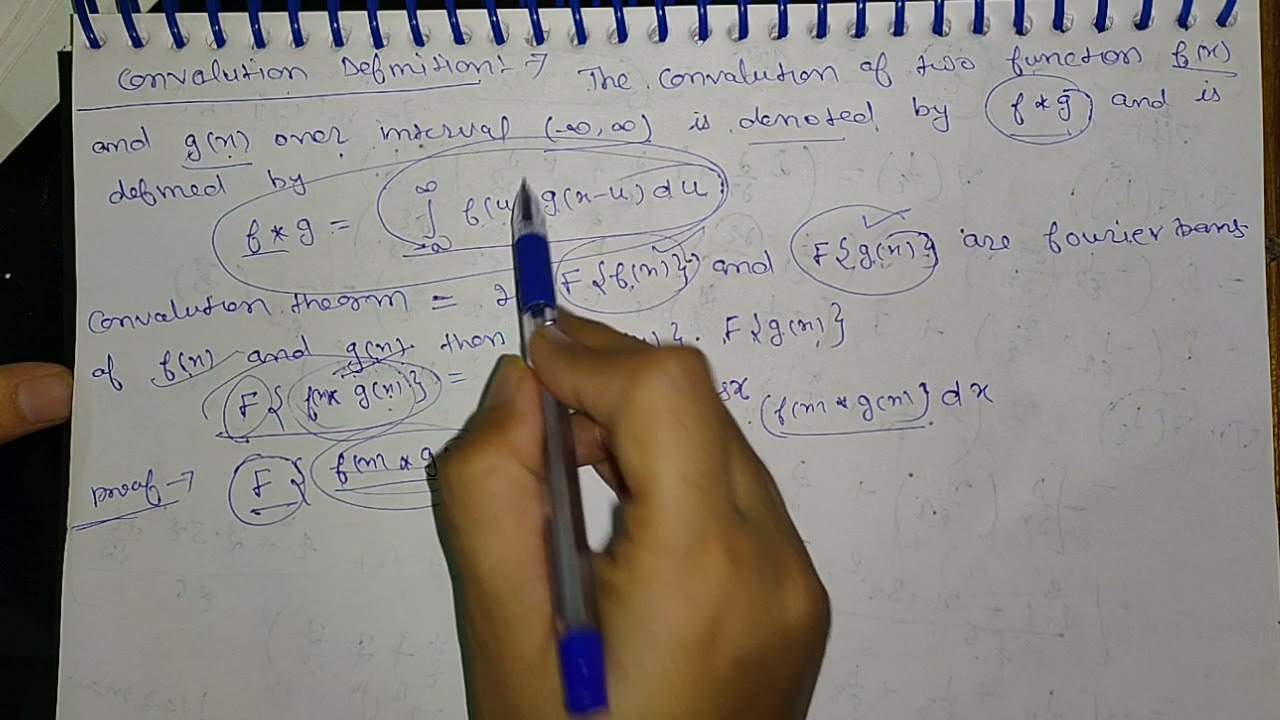 Convalution Definition:- → The Convalution of two function f(x)
and g(x) over interval (-∞,∞) is denoted by f * g and is
defined by
f * g = ∫_{-∞}^{∞} f(u g(x-u) du
Convalution theorm = F{f(x)} and F{g(x)} are fourier trans
of f(x) and g(x) then }. F{g(x)}
F{f(x)* g(x)} =
sx . (f(x) * g(x)} dx
proof → F{ f(x) * g